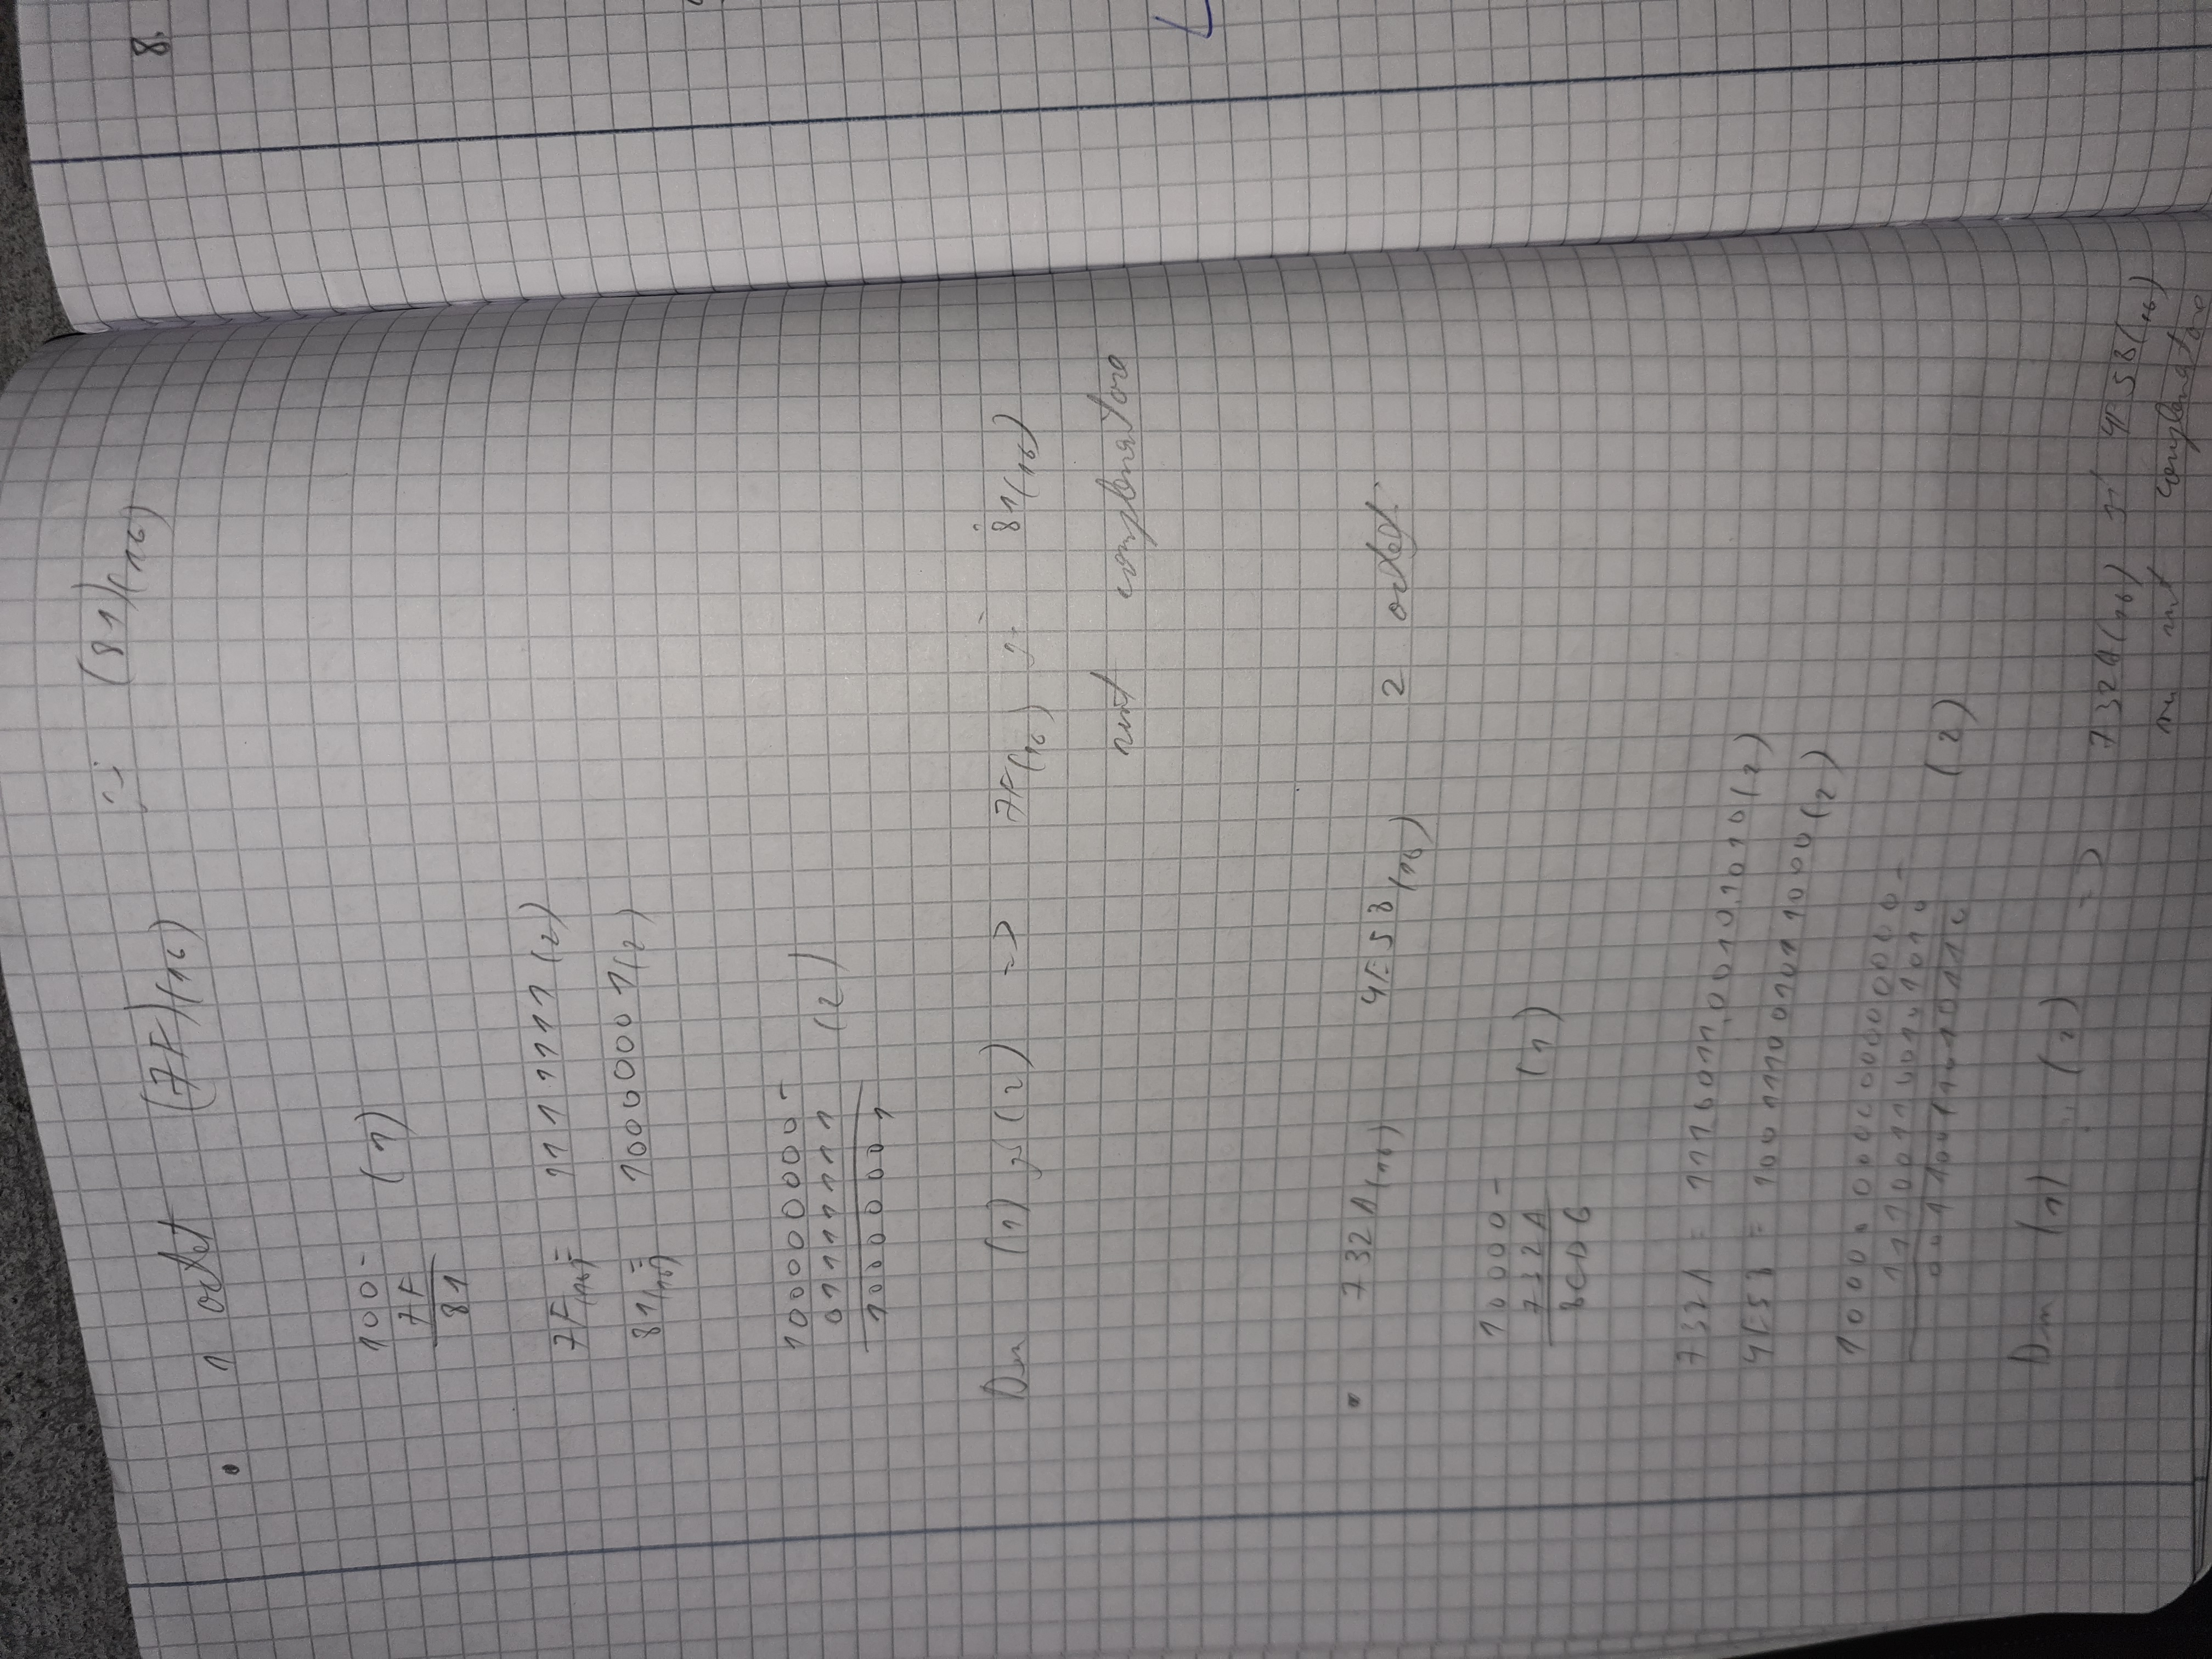 • 1 octet (7F)(16) și (81)(16)
8.
100-
7F (1)
81
7F(16) = 1111111(2)
81(16) = 10000001(2)
100000000-
01111111 (2)
10000001
Din (1) și (2) => 7F(16) și 81(16)
sunt complementare
• 732A(16) 4E58(16) 2 octeți
10000-
732A (1)
8CD6
732A = 111.0011.0010.1010(2)
4E58 = 100111001011000(2)
(2)
Din (1) și (2) => 732A(16) și 4E58(16)
nu sunt complementare